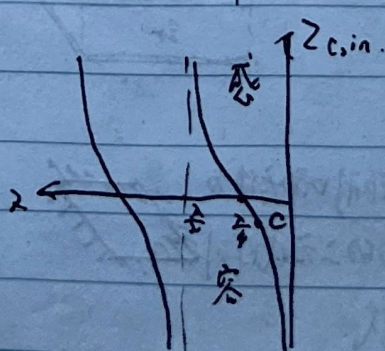 Zc,in.
感
z
λ/2
λ/4
C
容